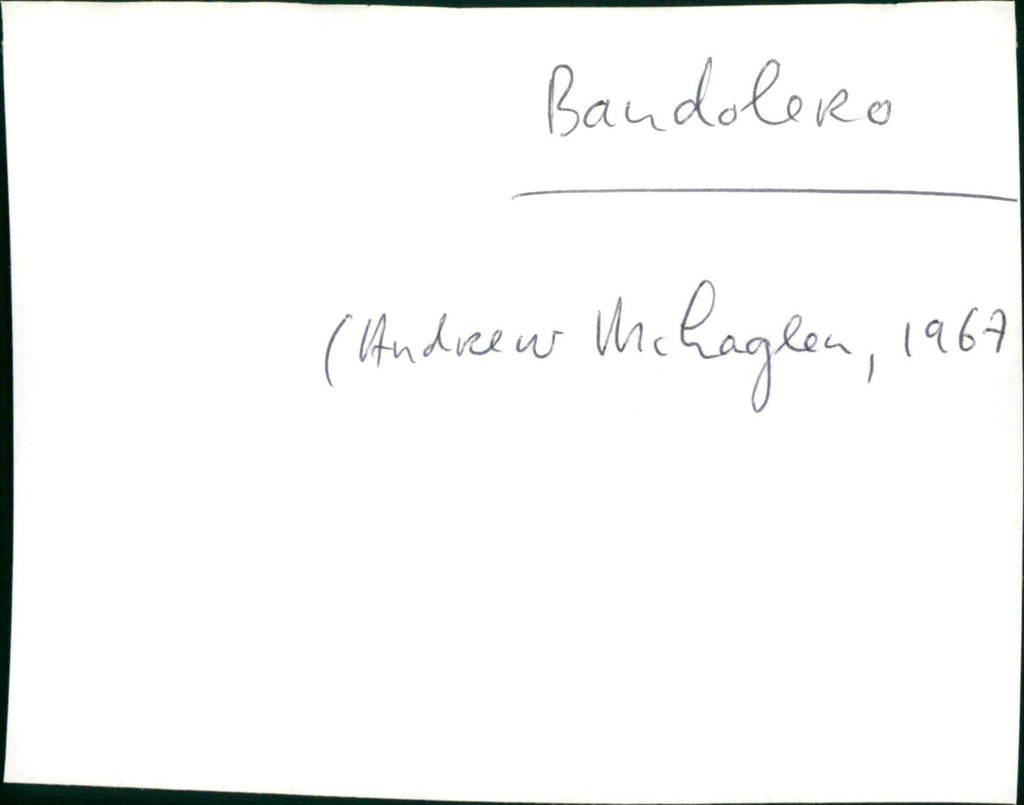 Bandolero
(Andrew McLaglen, 1967